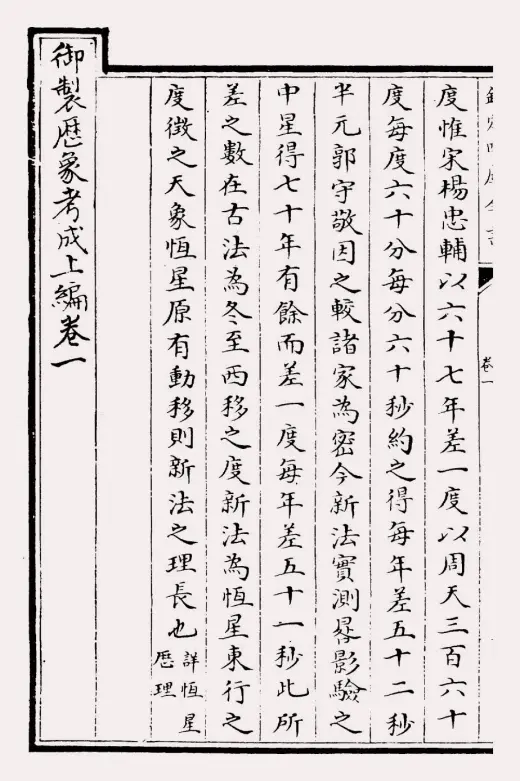 欽定四庫全書
卷一
度惟宋楊忠輔以六十七年差一度以周天三百六十
度每度六十分每分六十秒約之得每年差五十二秒
半元郭守敬因之較諸家為密今新法實測晷影驗之
中星得七十年有餘而差一度每年差五十一秒此所
差之數在古法為冬至西移之度新法為恆星東行之
度徴之天象恆星原有動移則新法之理長也詳恆星
厯理
御製厯象考成上編卷一